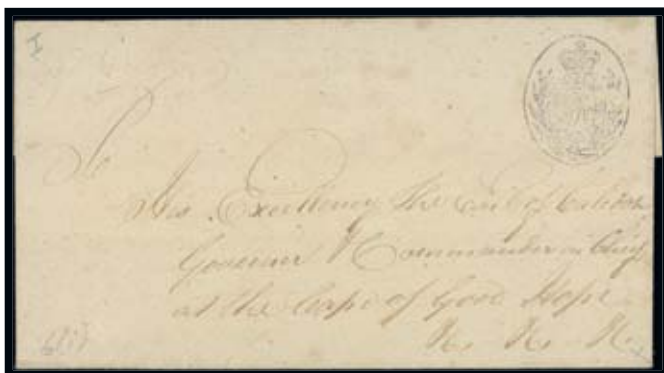 I
To
His Excellency The Earl of Caledon
Governor & Commander in Chief
at the Cape of Good Hope
&c &c &c